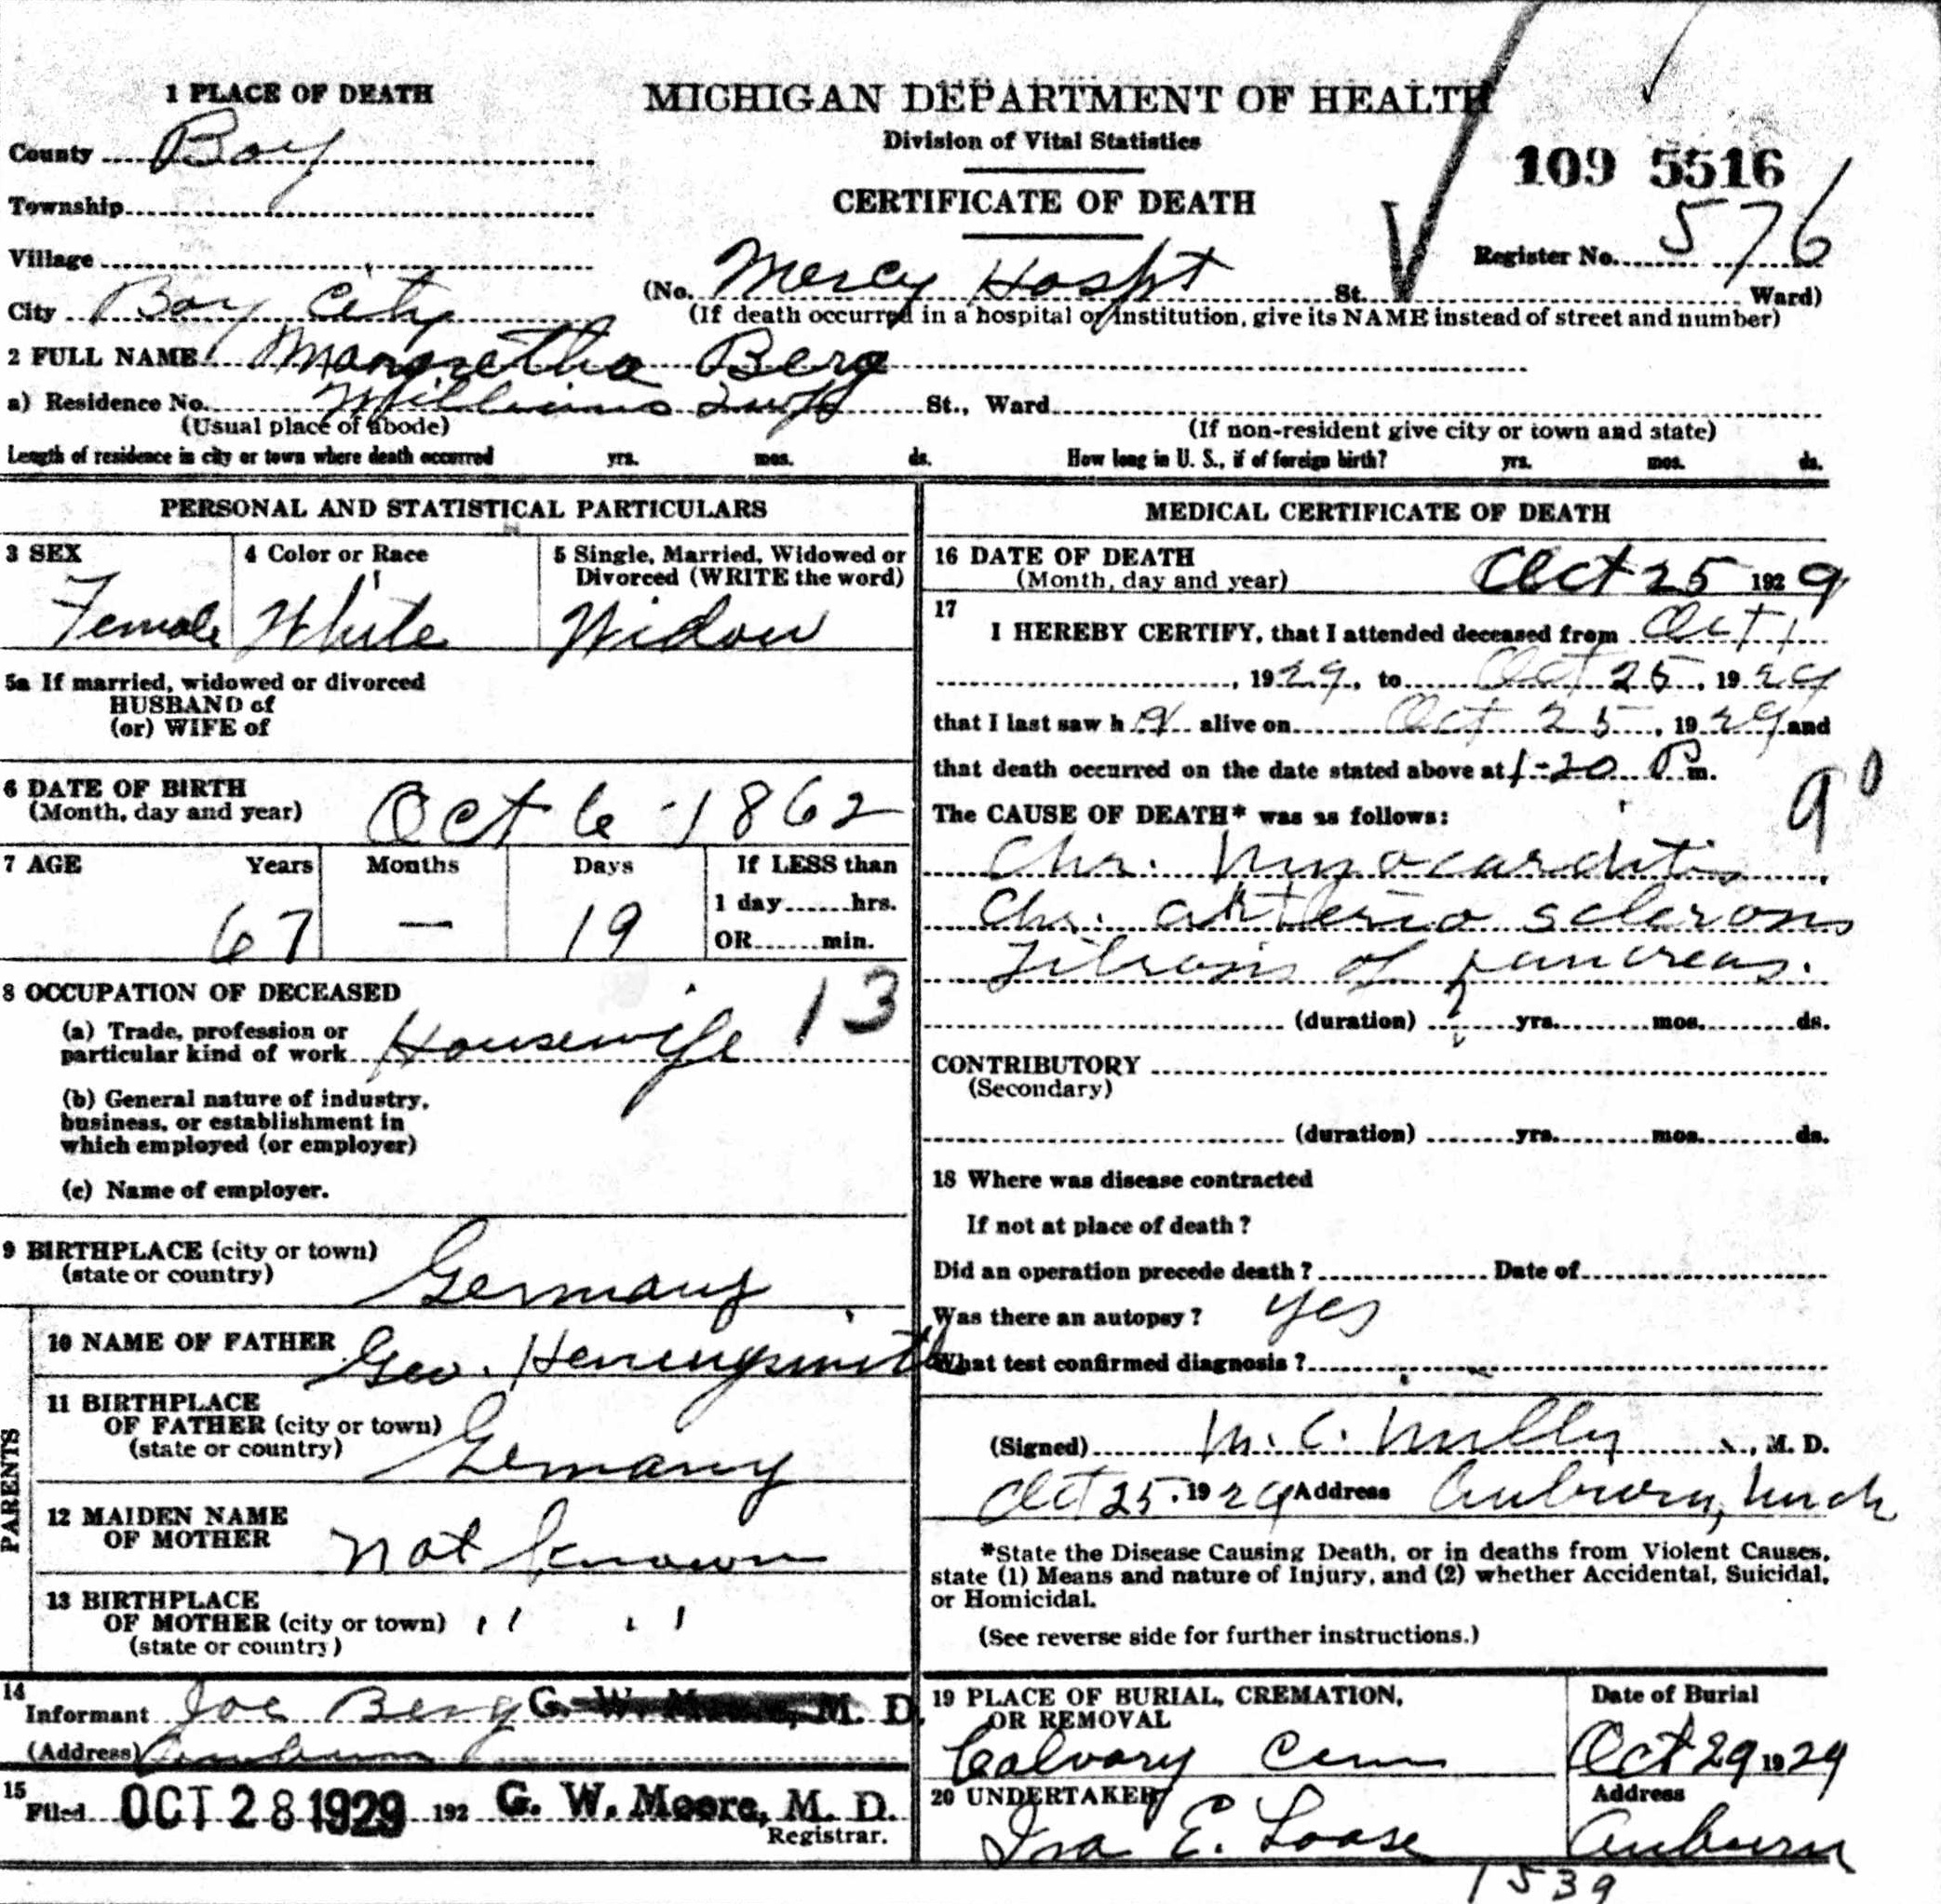 1 PLACE OF DEATH
County Bay
Township
Village
City Bay City
MICHIGAN DEPARTMENT OF HEALTH
Division of Vital Statistics
CERTIFICATE OF DEATH
109 5516
Register No. 576
(No. Mercy Hospt St. Ward)
(If death occurred in a hospital or institution, give its NAME instead of street and number)
2 FULL NAME Margretha Berg
a) Residence No. Williams Twp St., Ward
(Usual place of abode) (If non-resident give city or town and state)
Length of residence in city or town where death occurred yrs. mos. ds. How long in U. S., if of foreign birth? yrs. mos. ds.
PERSONAL AND STATISTICAL PARTICULARS
3 SEX
Female
4 Color or Race
White
5 Single, Married, Widowed or
Divorced (WRITE the word)
Widow
5a If married, widowed or divorced
HUSBAND of
(or) WIFE of
6 DATE OF BIRTH
(Month, day and year) Oct 6 - 1862
7 AGE Years Months Days If LESS than
67 — 19 1 day hrs.
OR min.
8 OCCUPATION OF DECEASED
13
(a) Trade, profession or
particular kind of work Housewife
(b) General nature of industry,
business, or establishment in
which employed (or employer)
(c) Name of employer.
9 BIRTHPLACE (city or town)
(state or country) Germany
PARENTS
10 NAME OF FATHER
Geo.
11 BIRTHPLACE
OF FATHER (city or town)
(state or country) Germany
12 MAIDEN NAME
OF MOTHER not known
13 BIRTHPLACE
OF MOTHER (city or town) " "
(state or country)
14
Informant Joe Berg G. W. Moore, M. D.
(Address) Auburn
15
Filed OCT 28 1929 192 G. W. Moore, M. D.
Registrar.
MEDICAL CERTIFICATE OF DEATH
16 DATE OF DEATH
(Month, day and year) Oct 25 1929
17
I HEREBY CERTIFY, that I attended deceased from Oct 1
, 1929, to Oct 25, 1929
that I last saw h alive on Oct 25, 1929 and
that death occurred on the date stated above at 1-20 P m.
The CAUSE OF DEATH* was as follows: 90
Chr. Myocarditis
Chr. arterio sclerosis
Fibrosis of pancreas.
(duration) ? yrs. mos. ds.
CONTRIBUTORY
(Secondary)
(duration) yrs. mos. ds.
18 Where was disease contracted
If not at place of death?
Did an operation precede death? Date of
Was there an autopsy? yes
What test confirmed diagnosis?
(Signed) M. C. , M. D.
Oct 25, 1929 Address Auburn, Mich
*State the Disease Causing Death, or in deaths from Violent Causes,
state (1) Means and nature of Injury, and (2) whether Accidental, Suicidal,
or Homicidal.
(See reverse side for further instructions.)
19 PLACE OF BURIAL, CREMATION,
OR REMOVAL
Calvary Cem
Date of Burial
Oct 29 1929
20 UNDERTAKER
Ira E. Loose
Address
Auburn
1539